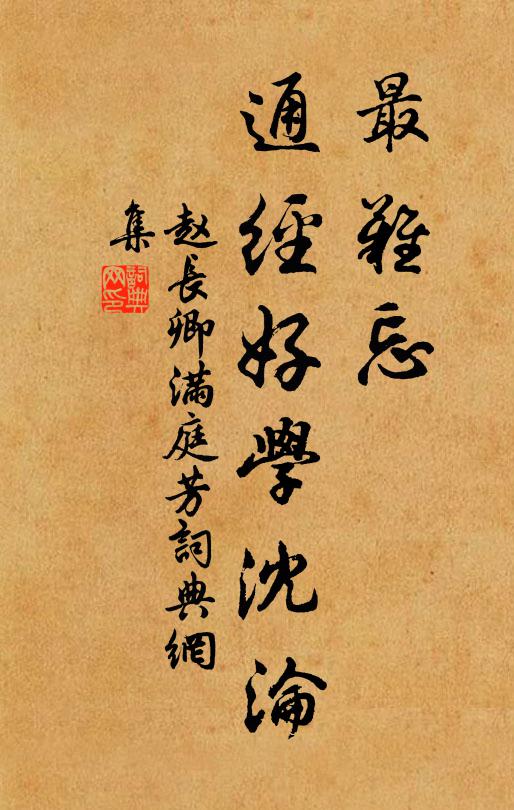 最難忘
通經好學沈淪
赵長卿滿庭芳詞典網
集
詞典
网印